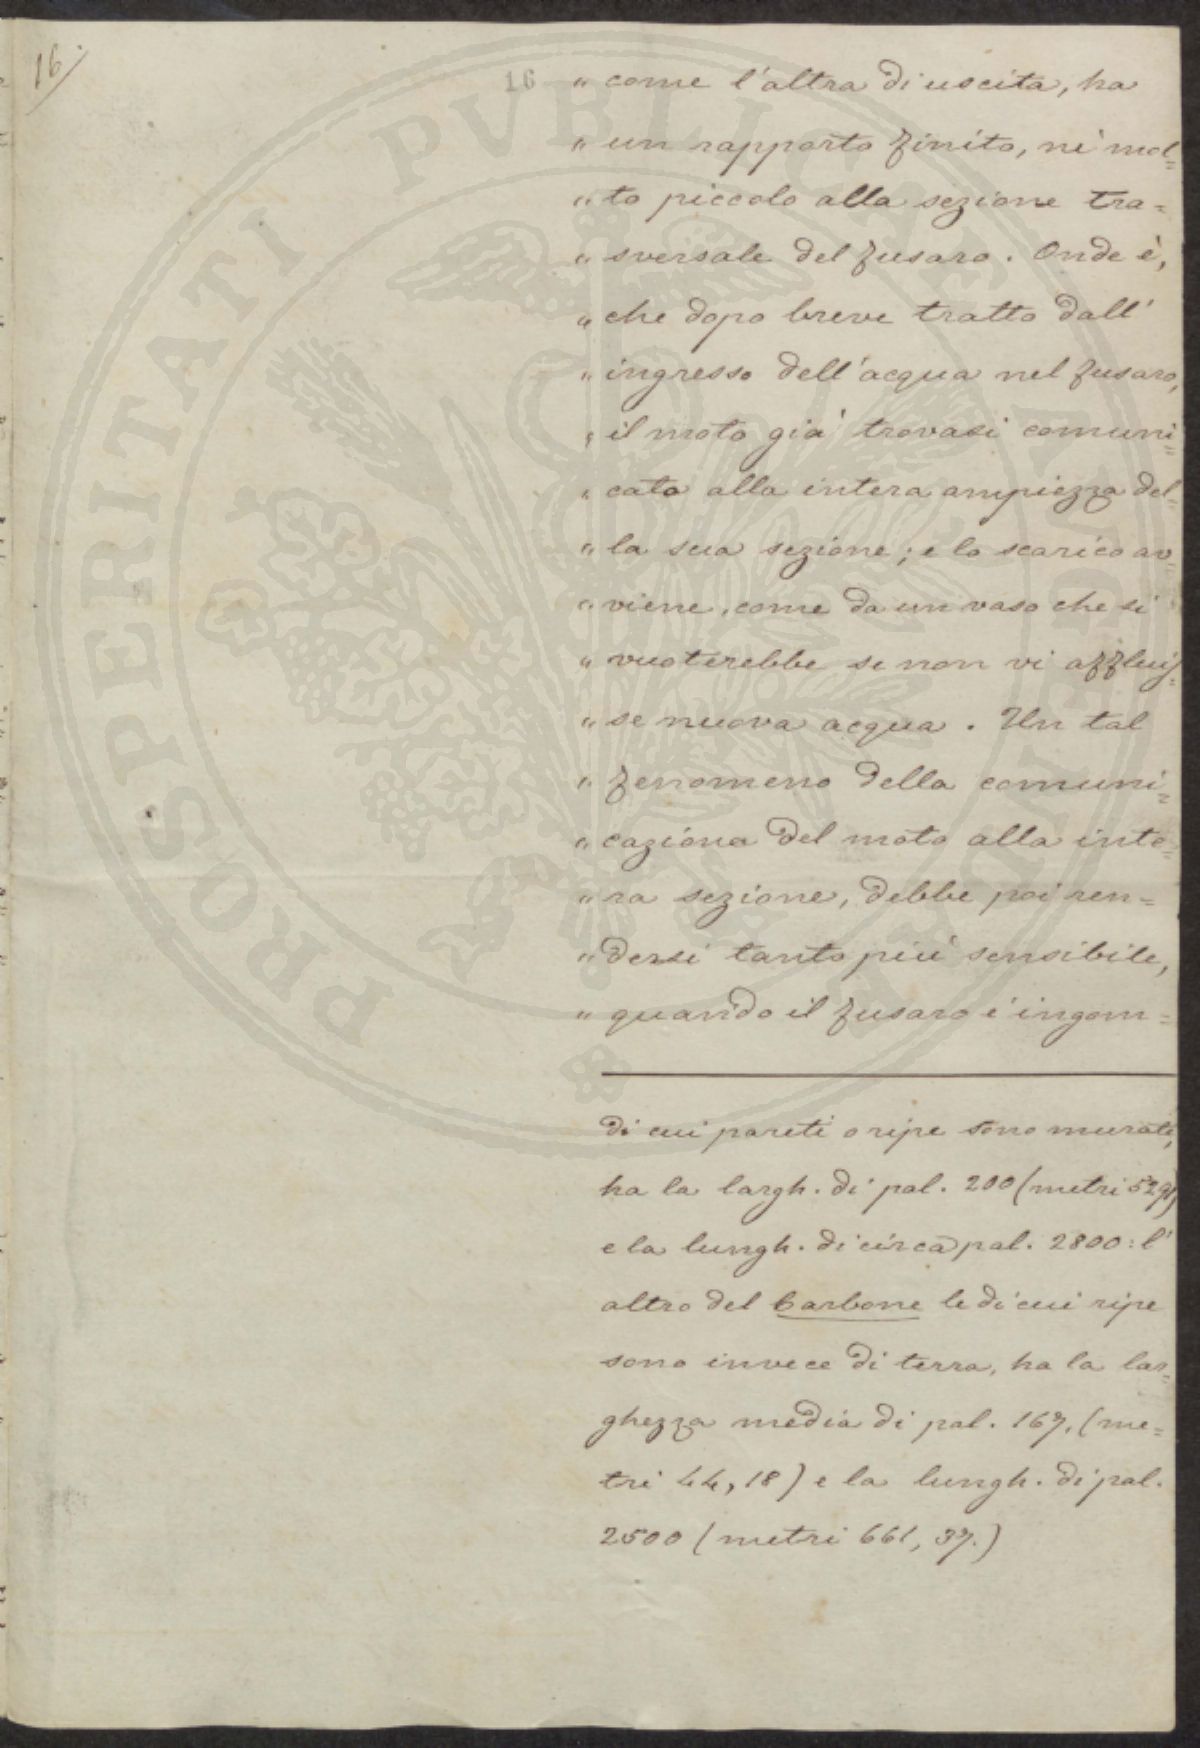 16.
16
„ come l'altra di uscita, ha
„ un rapporto finito, nè mol=
„ to piccolo alla sezione tra=
„ sversale del fusaro. Onde è,
„ che dopo breve tratto dall'
„ ingresso dell'acqua nel fusaro,
„ il moto già trovasi comuni=
„ cato alla intera ampiezza del=
„ la sua sezione; e lo scarico av
„ viene, come da un vaso che si
„ vuoterebbe se non vi affluis=
„ se nuova acqua. Un tal
„ fenomeno della comuni=
„ caziona del moto alla inte=
„ ra sezione, debbe poi ren=
„ dersi tanto più sensibile,
„ quando il fusaro è ingom=
di cui pareti o ripe sono murate,
ha la largh. di pal. 200 (metri 52,91)
e la lungh. di circa pal. 2800: l'
altro del barbone le di cui ripe
sono invece di terra, ha la lar=
ghezza media di pal. 167, (me=
tri 44,18) e la lungh. di pal.
2500 (metri 661,37.)
PROSPERITATI PVBLICAE AVGENDAE